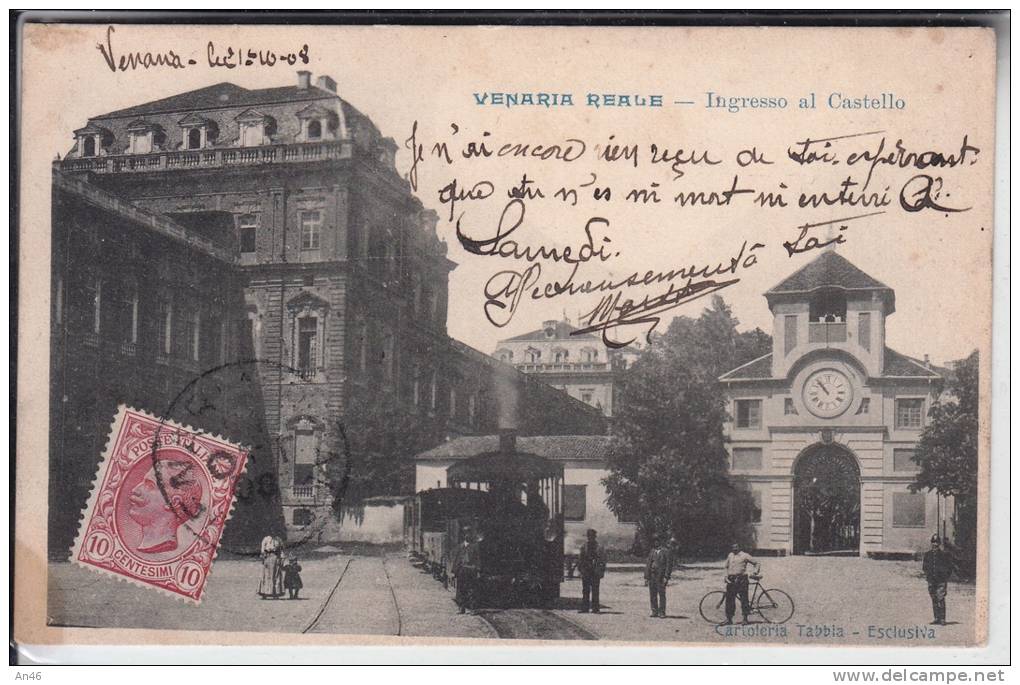 Venaria - le 15-10-08
VENARIA REALE — Ingresso al Castello
Je n'ai encore rien reçu de toi. espérant
que tu n'es ni mort ni enterré
Samedi.
à toi
POSTE ITALIANE
10 CENTESIMI 10
Cartoleria Tabbia - Esclusiva
An46
delcampe.net